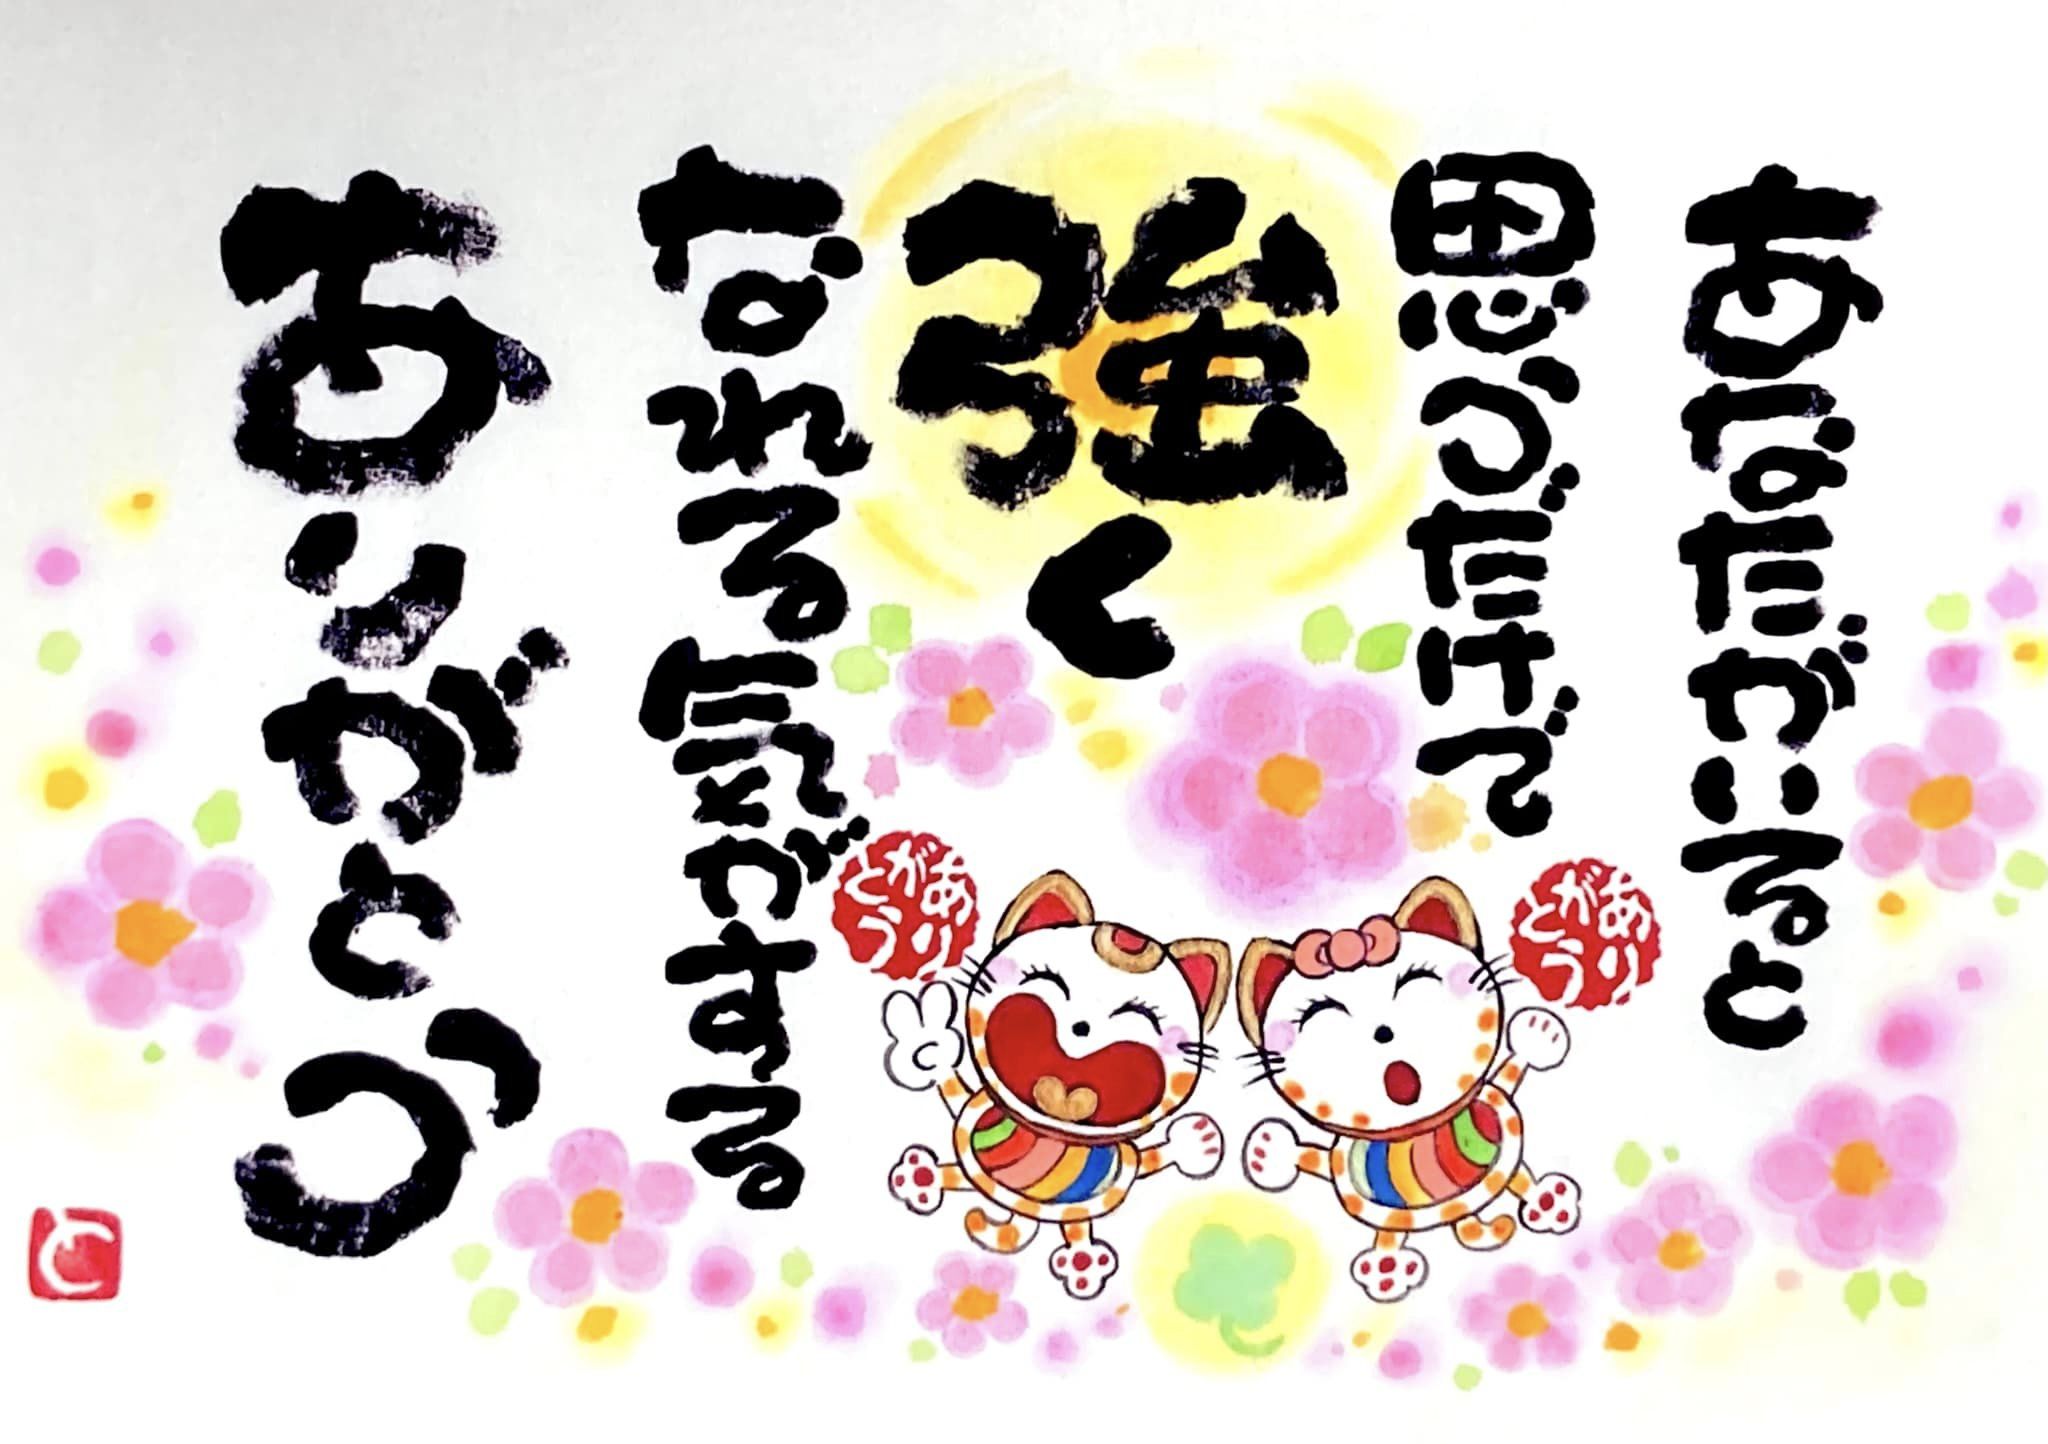 あなたがいると
思うだけで
強く
なれる気がする
ありがとう
ありがとう
ありがとう
と